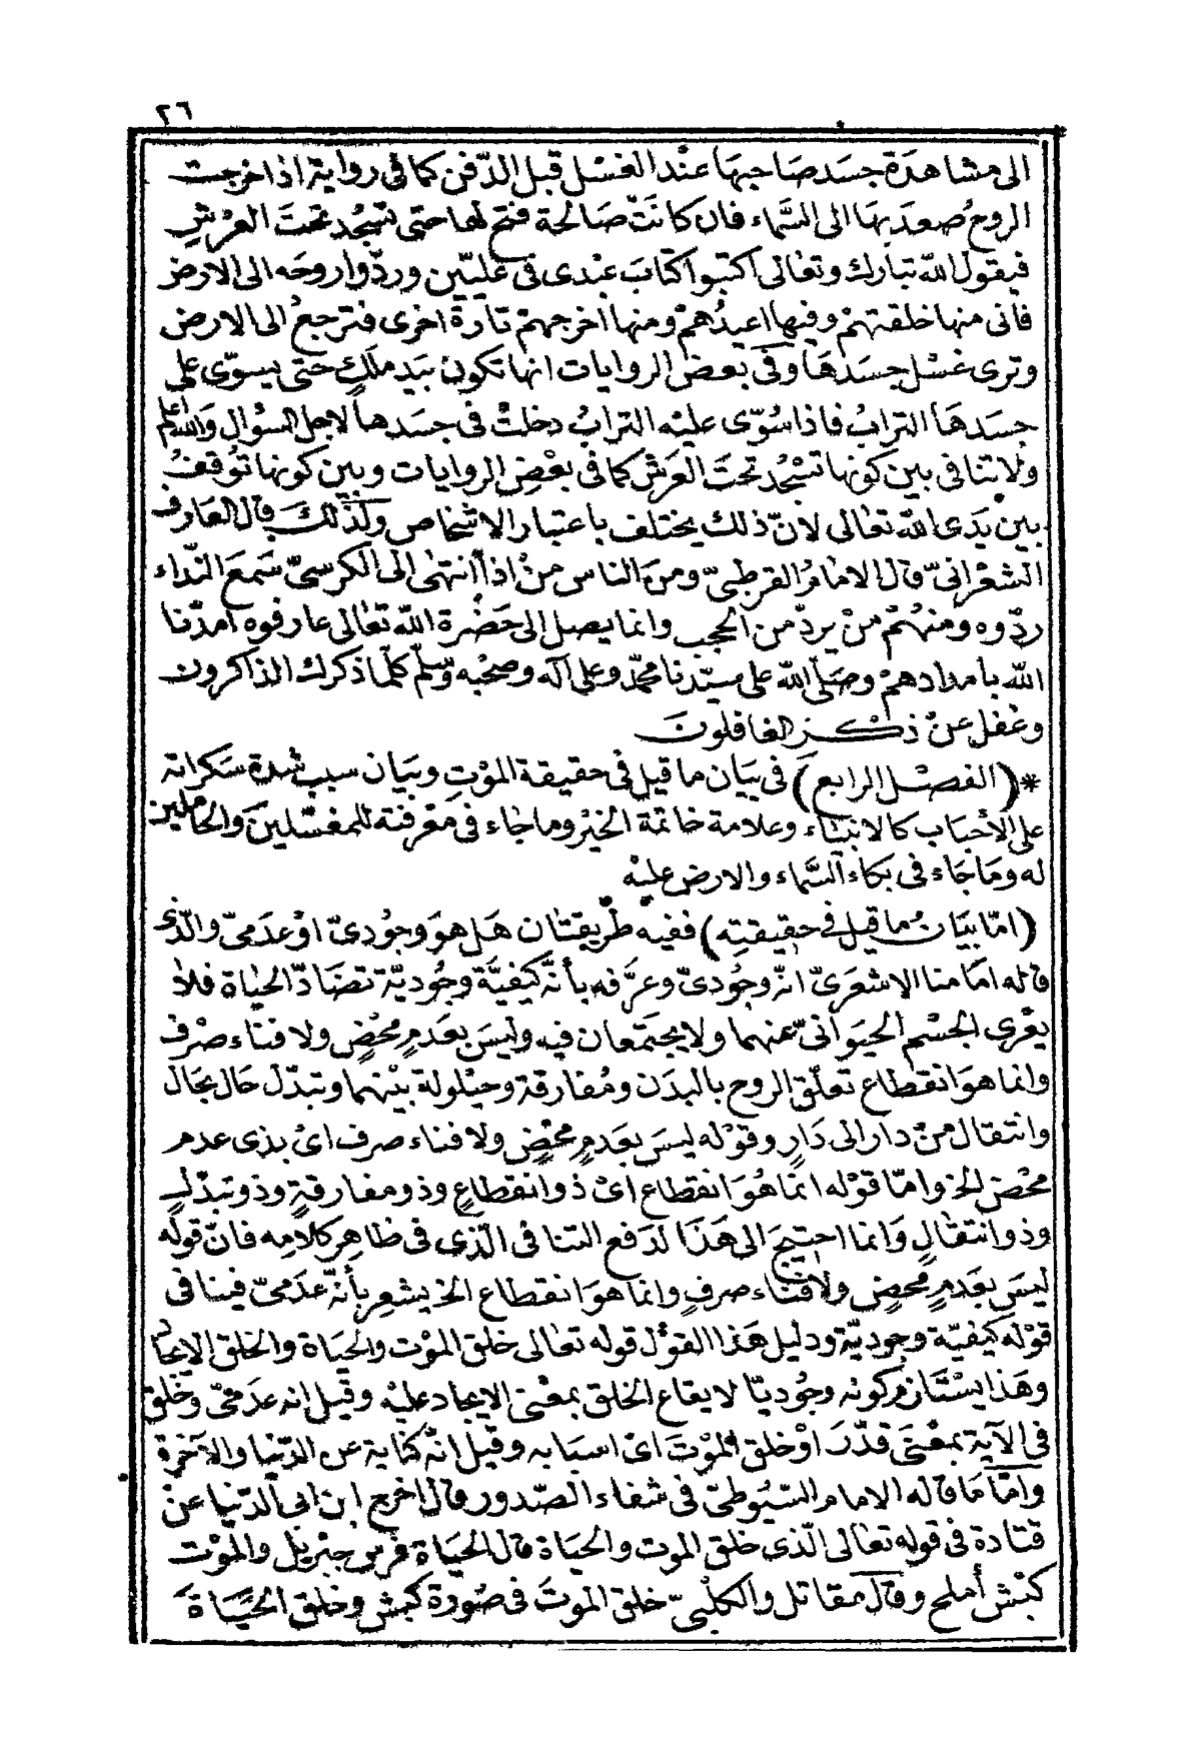 ٢٦
الى مشاهدة جسد صاحبها عند الغسل قبل الدّفن كما فى رواية اذا خرجت
الروح صعد بها الى السّماء فان كانت صالحة فتح لها حتى تسجد تحت العرش
فيقول اللّه تبارك وتعالى اكتبوا كتاب عبدى فى عليّين وردّوا روحه الى الارض
فانى منها خلقتهم وفيها اعيدهم ومنها اخرجهم تارة اخرى فترجع الى الارض
وترى غسل جسدها وفى بعض الروايات انها تكون بيد ملك حتى يسوّى على
جسدها التراب فاذا سوّى عليه التراب دخلت فى جسدها لاجل السؤال واللّه اعلم
ولا تنافى بين كونها تسجد تحت العرش كما فى بعض الروايات وبين كونها توقف
بين يدى اللّه تعالى لانّ ذلك يختلف باعتبار الاشخاص وكذلك قال العارف
الشعرانىّ قال الامام القرطبىّ ومن الناس من اذا انتهى الى الكرسىّ سمع النّداء
ردّوه ومنهم من يردّ من الحجب وانما يصل الى حضرة اللّه تعالى عارفوه امدّنا
اللّه بامدادهم وصلّى اللّه على سيّدنا محمّد وعلى آله وصحبه وسلّم كلّما ذكرك الذاكرون
وغفل عن ذكر الغافلون
*(الفصل الرابع) فى بيان ما قيل فى حقيقة الموت وبيان سبب شدة سكراته
على الأحباب كالانبياء وعلامة خاتمة الخير وما جاء فى معرفته للمغسّلين والحاملين
له وما جاء فى بكاء السّماء والارض عليه
(امّا بيان ما قيل فى حقيقته) ففيه طريقتان هل هو وجودىّ او عدمىّ والّذى
قاله امامنا الاشعرىّ انّه وجودىّ وعرّفه بأنّه كيفيّة وجوديّة تضادّ الحياة فلا
يعرى الجسم الحيوانىّ عنهما ولا يجتمعان فيه وليس بعدم محض ولا فناء صرف
وانما هو انقطاع تعلّق الروح بالبدن ومفارقة وحيلولة بينهما وتبدّل حال بحال
وانتقال من دار الى دار وقوله ليس بعدم محض ولا فناء صرف اى بذى عدم
محض الخ وامّا قوله انما هو انقطاع اى ذو انقطاع وذو مفارقة وذو تبدّل
وذو انتقال وانما احتيج الى هذا لدفع التنافى الّذى فى ظاهر كلامه فانّ قوله
ليس بعدم محض ولا فناء صرف وانما هو انقطاع الخ يشعر بأنّه عدمىّ فينافى
قوله كيفيّة وجوديّة ودليل هذا القول قوله تعالى خلق الموت والحياة والخلق الايجاد
وهذا يستلزم كونه وجوديّا لايقاع الخلق بمعنى الايجاد عليه وقيل انه عدمىّ وخلق
فى الآية بمعنى قدّر او خلق الموت اى اسبابه وقيل انّه كناية عن الدّنيا والآخرة
وامّا ما قاله الامام السّيوطىّ فى شفاء الصّدور قال اخرج ابن ابى الدّنيا عن
قتادة فى قوله تعالى الّذى خلق الموت والحياة قال الحياة فرس جبريل والموت
كبش أملح وقال مقاتل والكلبىّ خلق الموت فى صورة كبش وخلق الحياة